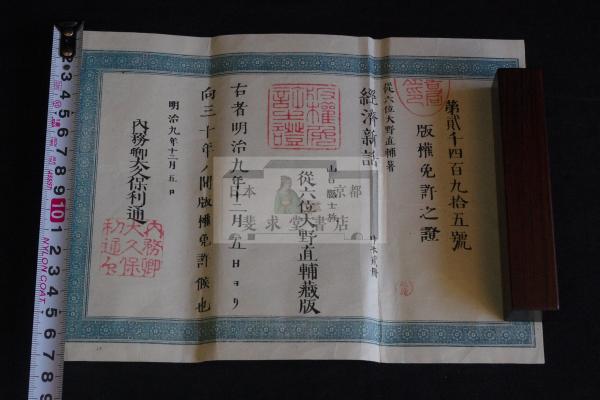 第貳千四百九拾五號
版權免許之證
從六位大野直輔著
經濟新話
山口縣士族
從六位大野直輔藏版
右者明治九年十二月五日ヨリ
向三十年ノ間版權免許候也
明治九年十二月五日
內務卿大久保利通
版權免許之證
內務卿大久保利通印
日本 京都
斐求堂書店
2 3 4 5 6 7 8 9 10 1 2 3 4 5 6 7 8
NYLON COAT